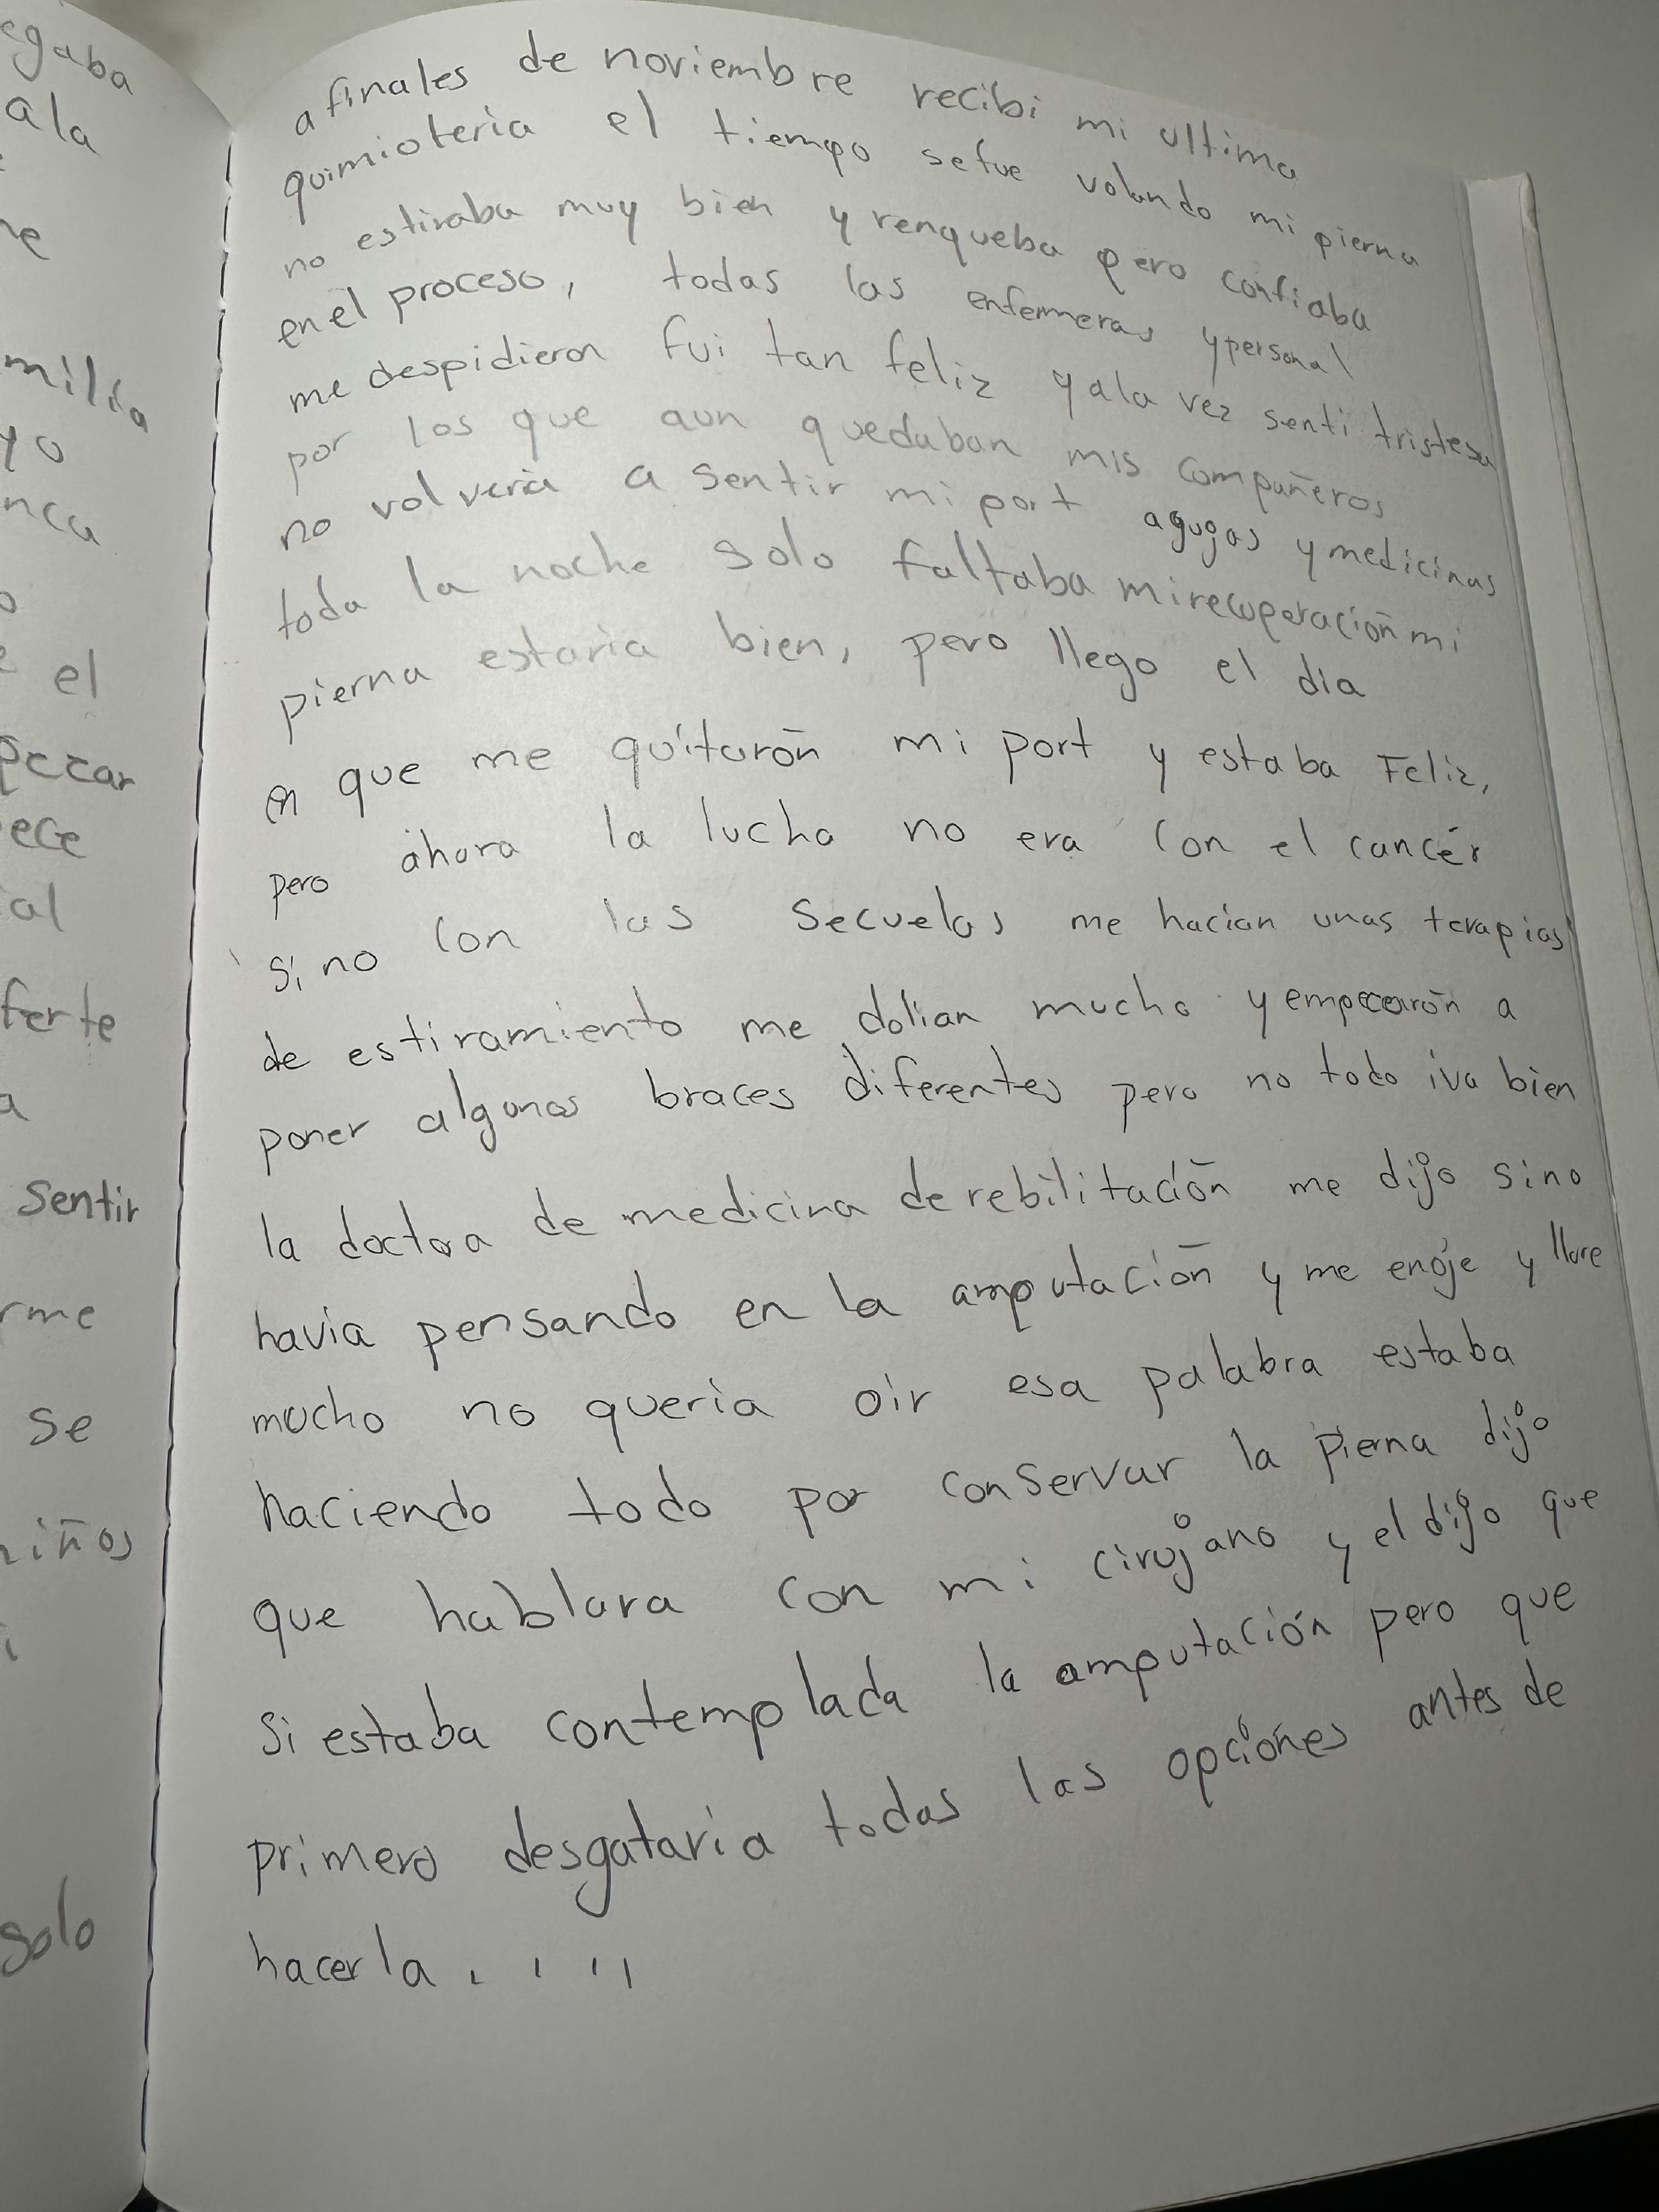 egaba
ala
ne
milia
yo
nca
o
e el
pezar
ece
ial
ferte
a
sentir
rme
se
niños
i
solo
a finales de noviembre recibi mi ultima
quimioteria el tiempo sefue volando mi pierna
no estiraba muy bien y renqueba pero confiaba
enel proceso, todas las enfermeras ypersonal
me despidieron fui tan feliz yala vez senti tristesa
por los que aun quedaban mis compañeros
no volveria a sentir mi port agujas y medicinas
toda la noche solo faltaba mirecuperación mi
pierna estaria bien, pero llego el dia
en que me quitarón mi port y estaba Feliz,
pero ahora la lucha no era con el cancér
si no con las secuelas me hacian unas terapias
de estiramiento me dolian mucho y empezarón a
poner algunos braces diferentes pero no todo iva bien
la doctora de medicina de rebilitación me dijo sino
havia pensando en la amputación y me enoje y llore
mucho no queria oir esa palabra estaba
haciendo todo por conservar la pierna dijo
que hablara con mi cirujano y el dijo que
si estaba contemplada la amputación pero que
primero desgataria todas las opciones antes de
hacerla . . . .